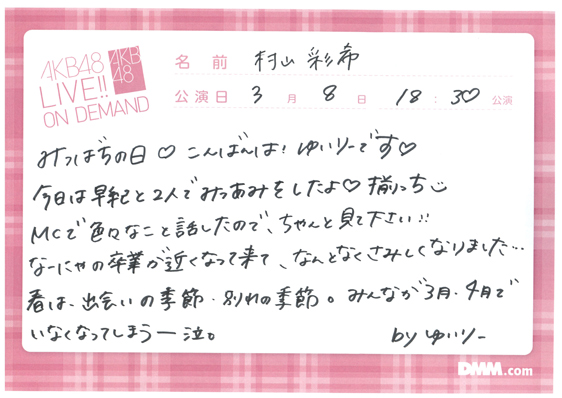 AKB48
LIVE!!
ON DEMAND
AKB
48
名前 村山彩希
公演日 3月8日 18:30公演
みつばちの日♡こんばんは!ゆいりーです♡
今日は早紀と2人でみつあみをしたよ♡揃っち
MCで色々なこと話したので、ちゃんと見て下さい!!
なーにゃの卒業が近くなって来て、なんとなくさみしくなりました…
春は、出会いの季節・別れの季節。みんなが3月・4月で
いなくなってしまうー泣。
by ゆいりー
DMM.com